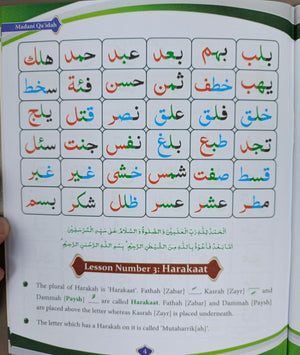 Madani Qa'idah
يلب بهم يعد عبد حمد هلك
يهب خطف ثمن حسن فئة سخط
خلق فلق علق نصر قتل يلج
تجد طبع بلغ نفس جنت سئل
قسط صفت شمس خشى غير غبر
مطر عشر عسر ظلل شكر بسم
اَلْحَمْدُ لِلّٰهِ رَبِّ الْعٰلَمِیْنَ وَ الصَّلٰوةُ وَ السَّلَامُ عَلٰی سَیِّدِ الْمُرْسَلِیْنَ
اَمَّا بَعْدُ فَاَعُوْذُ بِاللّٰهِ مِنَ الشَّیْطٰنِ الرَّجِیْمِ بِسْمِ اللّٰهِ الرَّحْمٰنِ الرَّحِیْمِ
Lesson Number 3: Harakaat
The plural of Harakah is 'Harakaat'. Fathah [Zabar] ـَ, Kasrah [Zayr] ـِ and
Dammah [Paysh] ـُ are called Harakaat. Fathah [Zabar] and Dammah [Paysh]
are placed above the letter whereas Kasrah [Zayr] is placed underneath.
The letter which has a Harakah on it is called 'Mutaharrik[ah]'.
4